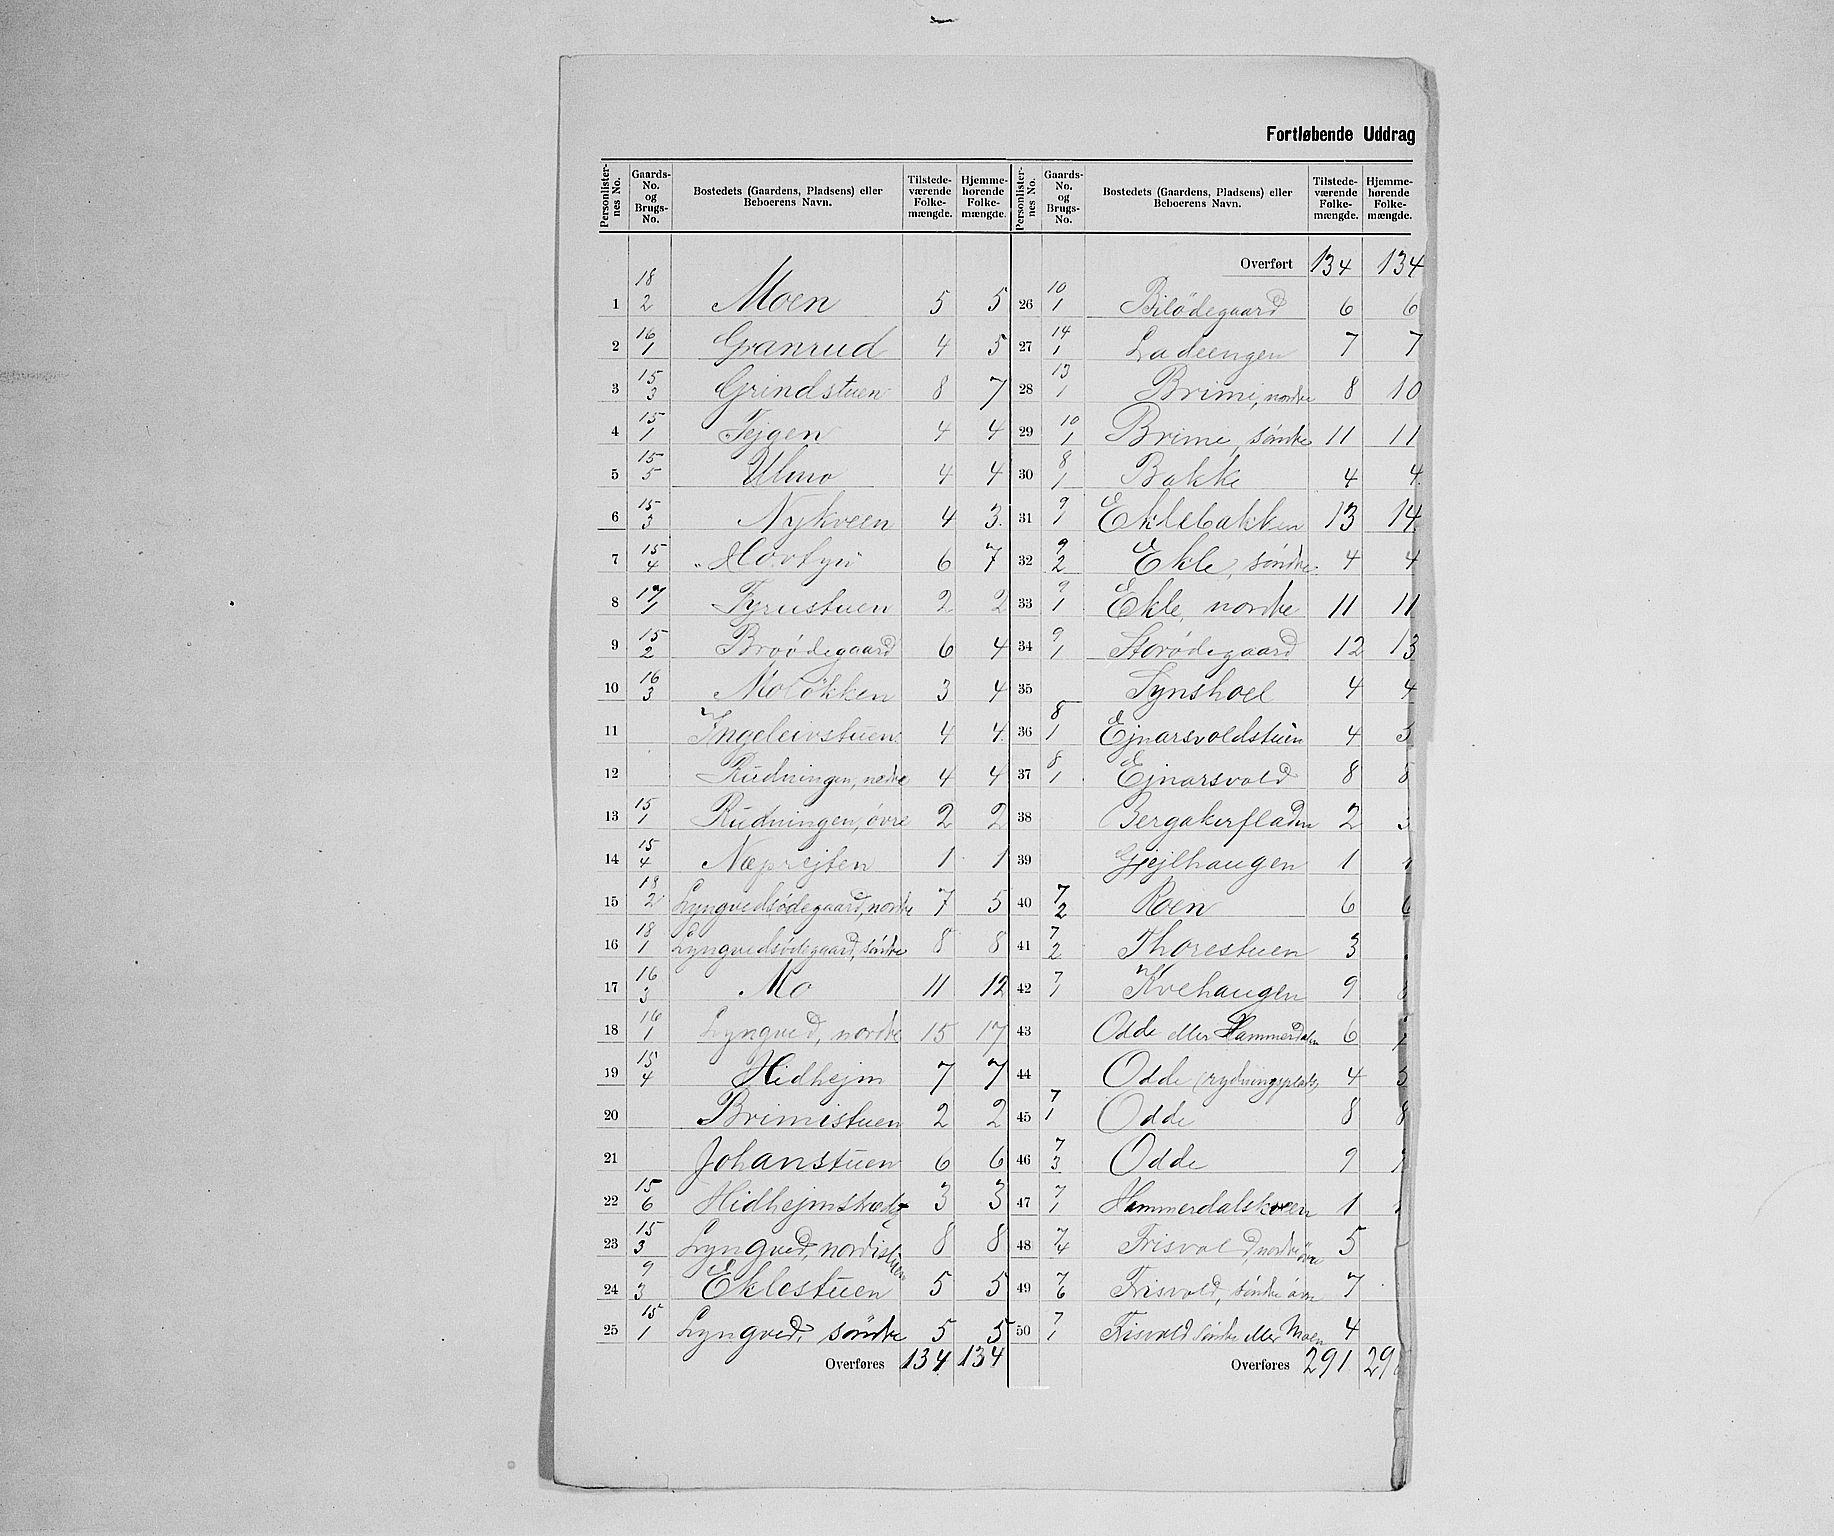 Fortløbende Uddrag
Personlisternes No. Gaards-No. og Brugs-No. Bostedets (Gaardens, Pladsens) eller Beboerens Navn. Tilstedeværende Folkemængde. Hjemmehørende Folkemængde. Personlisternes No. Gaards-No. og Brugs-No. Bostedets (Gaardens, Pladsens) eller Beboerens Navn. Tilstedeværende Folkemængde. Hjemmehørende Folkemængde.
1 18/2 Moen 5 5
2 16/1 Granrud 4 5
3 15/3 Grindstuen 8 7
4 15/1 Tejgen 4 4
5 15/5 Ulmo 4 4
6 15/3 Nykveen 4 3
7 15/4 6 7
8 17/1 Fyrustuen 2 2
9 15/2 Broödegaard 6 4
10 16/3 Molökken 3 4
11 Ingeleivstuen 4 4
12 Rudningen, nedre 4 4
13 15/1 Rudningen, övre 2 2
14 15/4 Næprejten 1 1
15 18/2 Lyngvedsödegaard, nordre 7 5
16 18/1 Lyngvedsödegaard, söndre 8 8
17 16/3 Mo 11 12
18 16/1 Lyngved, nordre 15 17
19 15/4 Hidhejm 7 7
20 Brimistuen 2 2
21 Johanstuen 6 6
22 15/6 3 3
23 15/3 Lyngved, nordistuen 8 8
24 9/3 Eklestuen 5 5
25 15/1 Lyngved, söndre 5 5
Overføres 134 134
Overført 134 134
26 10/1 Bilödegaard 6 6
27 14/1 Ladeengen 7 7
28 13/1 Brimi, nordre 8 10
29 10/1 Brime, söndre 11 11
30 8/1 Bakke 4 4
31 9/1 Eklebakken 13 14
32 9/2 Ekle, söndre 4 4
33 9/1 Ekle, nordre 11 11
34 9/1 Storödegaard 12 13
35 Synshoel 4 4
36 8/1 Ejnarsvoldstuen 4
37 8/1 Ejnarsvold 8
38 Bergakerfladen 2
39 Gjejlhaugen 1
40 7/2 Roen 6
41 7/2 Thorestuen 3
42 7/1 Kvehaugen 9
43 Odde eller Hammerdalen 6
44 Odde (rydningsplads) 4
45 7/1 Odde 8 8
46 7/3 Odde 9
47 7/1 Hammerdalskveen 1
48 7/4 Frisvold, nordre övre 5
49 7/6 Frisvold, söndre övre 7
50 7/1 Frisvold söndre eller Moen 4
Overføres 291 29